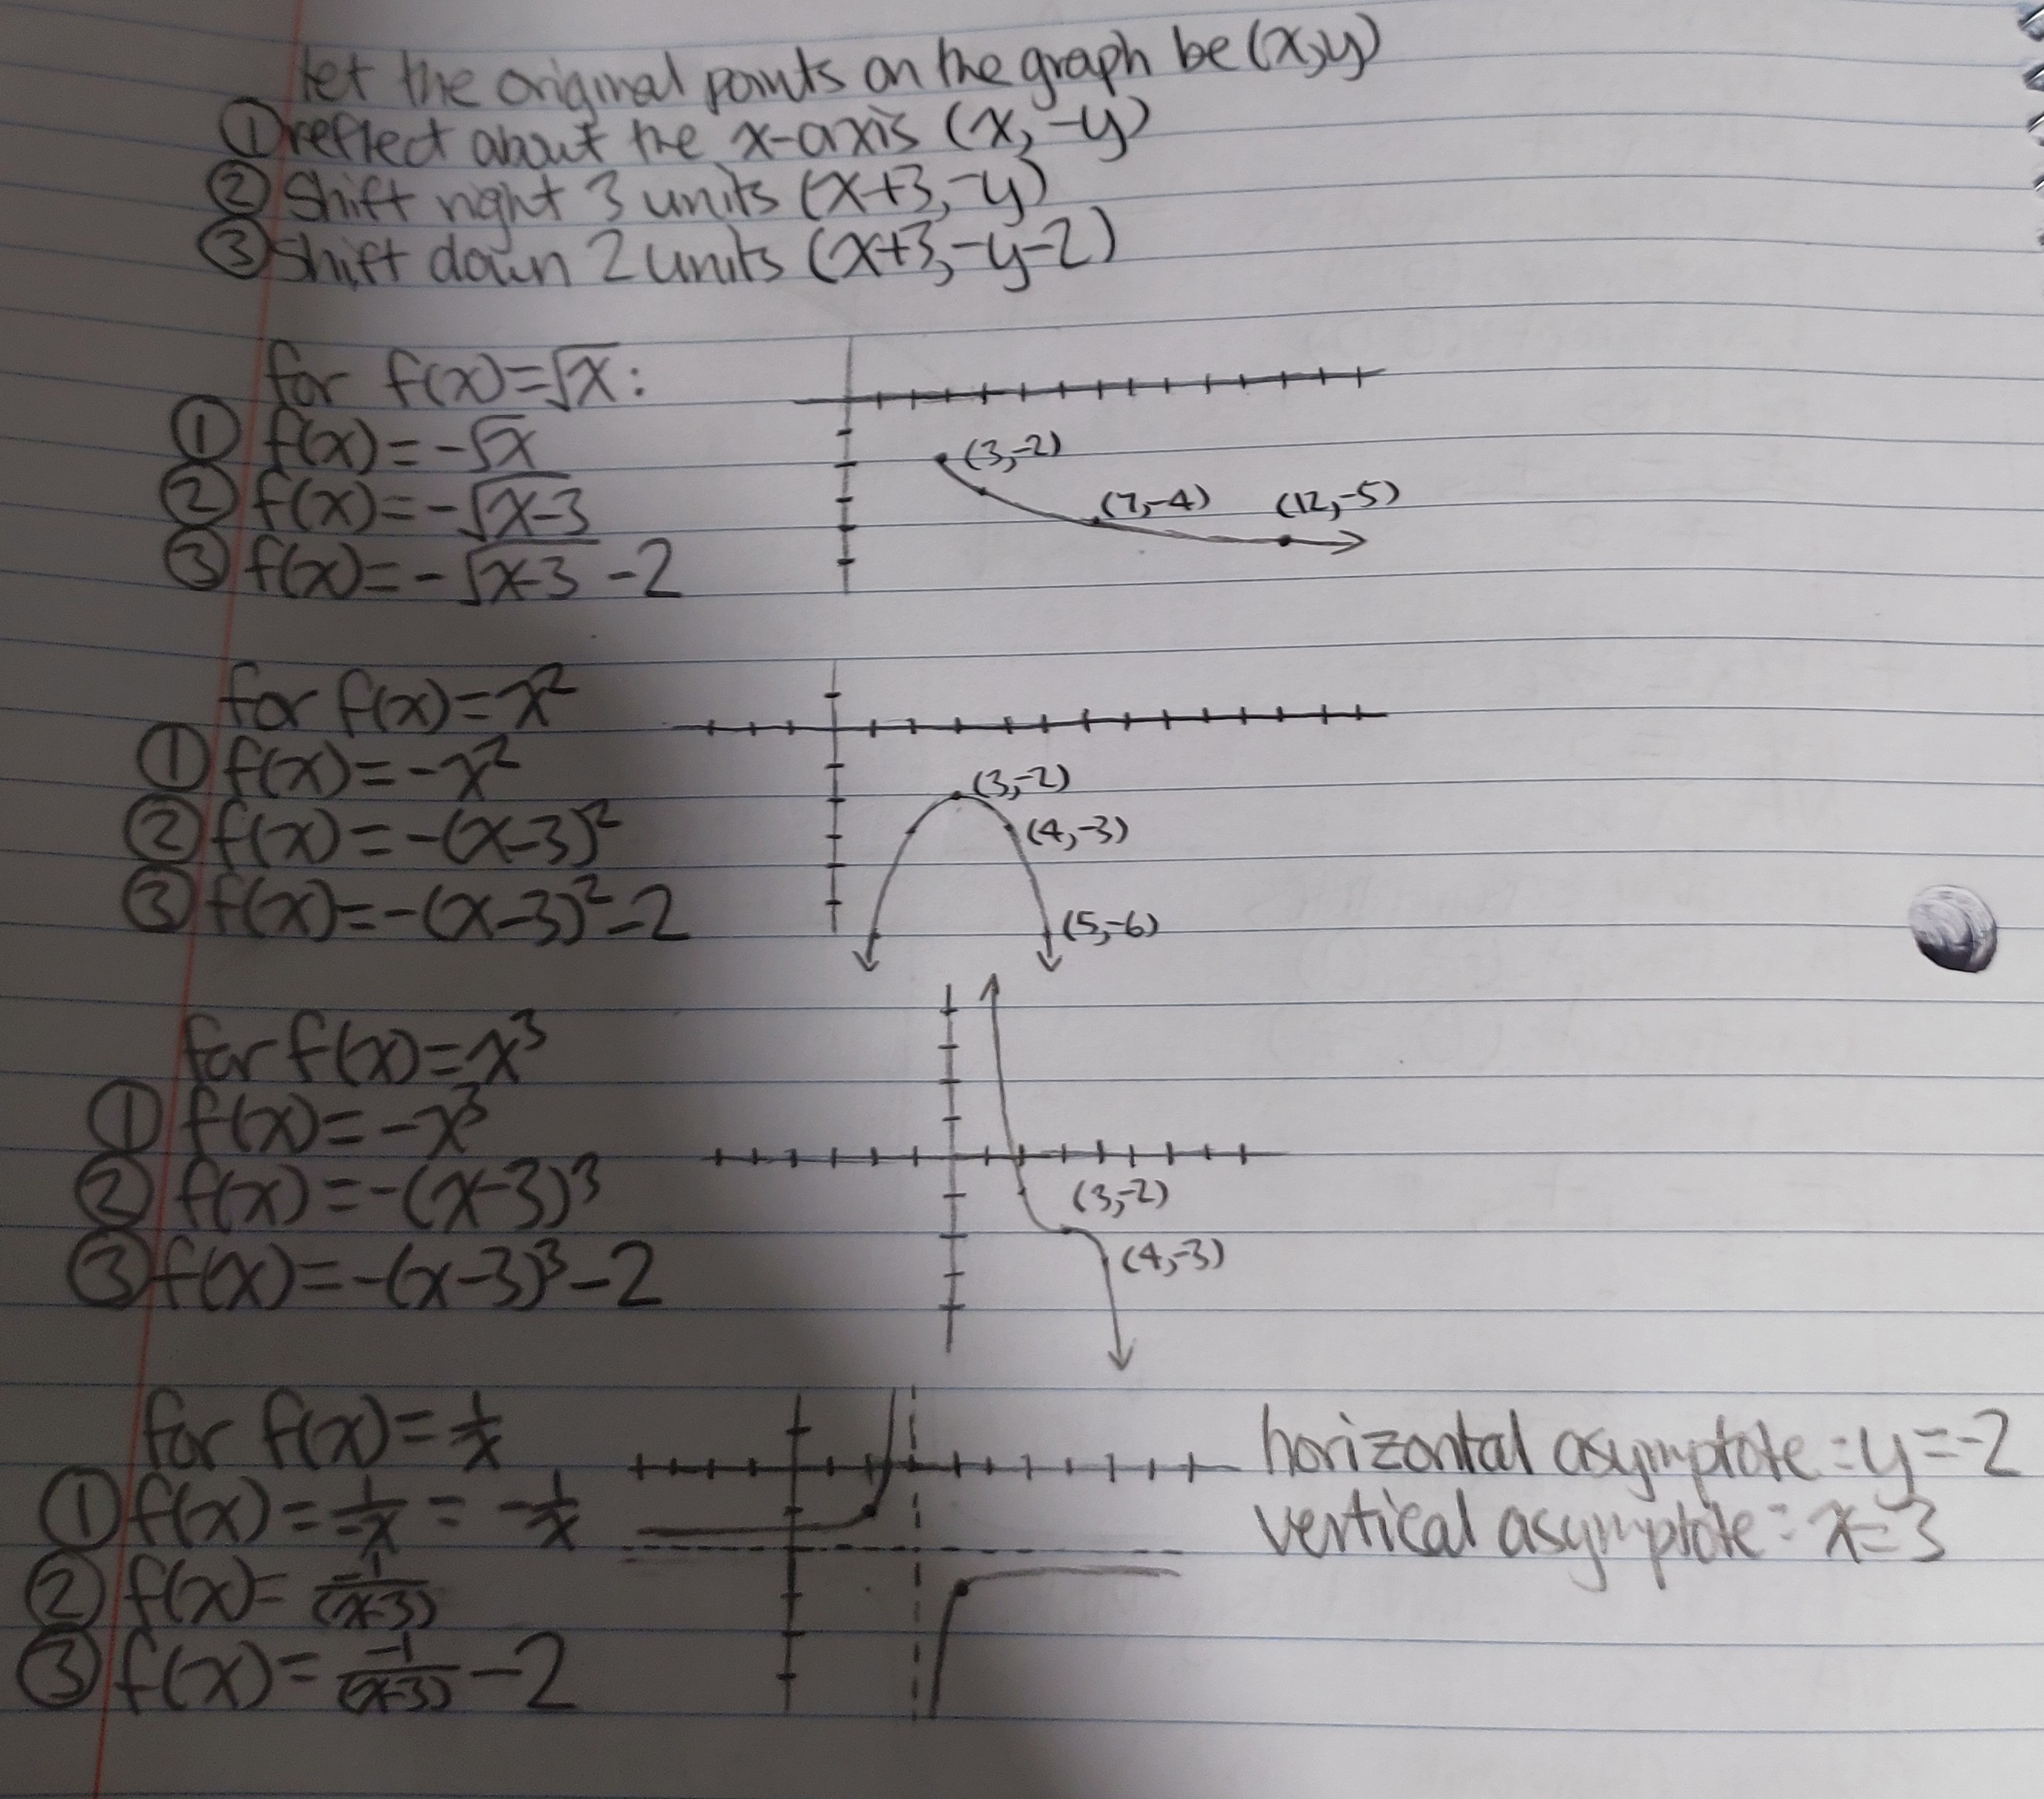 let the original points on the graph be (x,y)
① reflect about the x-axis (x, -y)
② Shift right 3 units (x+3, -y)
③ Shift down 2 units (x+3, -y-2)
for f(x)=√x:
① f(x) = -√x
② f(x) = -√(x-3)
③ f(x) = -√(x-3) -2
(3,-2)
(7,-4)
(12,-5)
for f(x)=x²
① f(x) = -x²
② f(x) = -(x-3)²
③ f(x) = -(x-3)²-2
(3,-2)
(4,-3)
(5,-6)
for f(x)=x³
① f(x) = -x³
② f(x) = -(x-3)³
③ f(x) = -(x-3)³-2
(3,-2)
(4,-3)
for f(x) = 1/x
① f(x) = 1/-x = -1/x
② f(x) = -1/(x-3)
③ f(x) = -1/(x-3) -2
horizontal asymptote: y=-2
vertical asymptote: x=3